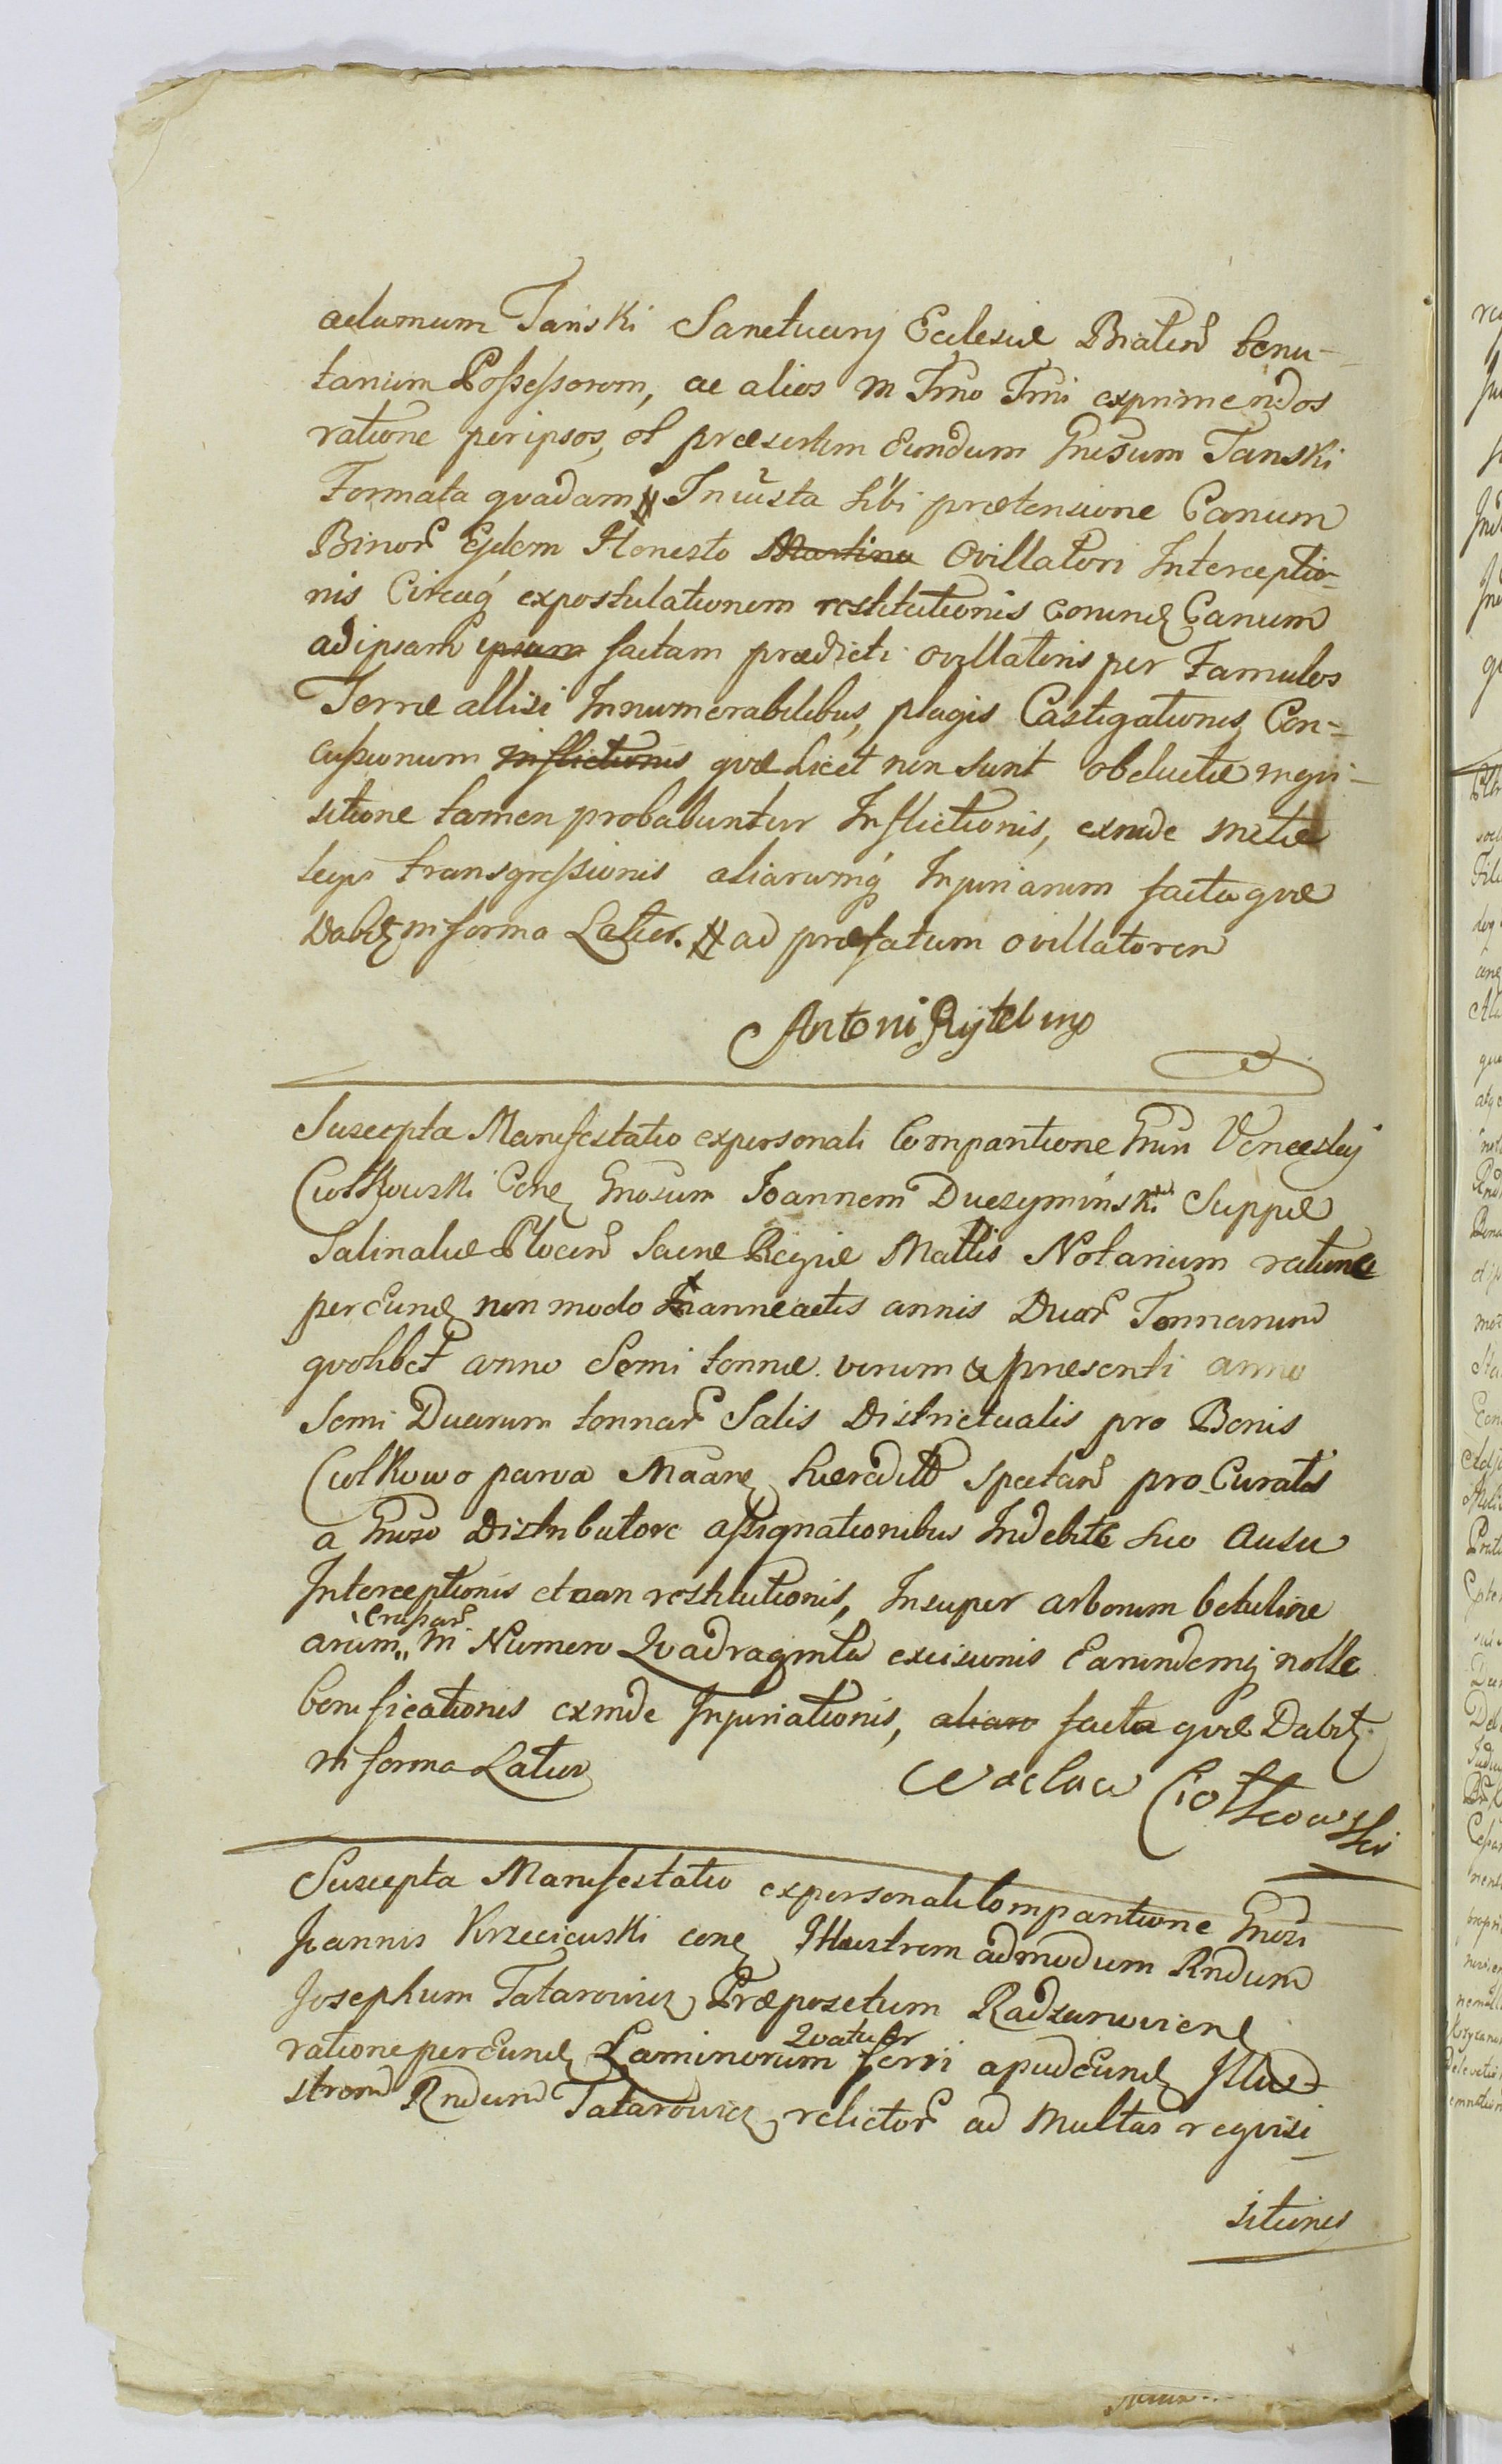 adamum Tański Sanctuarij Ecclesiæ Bialen tenu-
tarium Possessorem, ac alios in Tmo Tmi exprimendos
ratione per ipsos, et præsertim Eundum Gnesum Tanski
Formata qvadam # Iniusta sibi prætensione Canum
Binor Ejdem Honesto Martino Ovillatori Interceptio-
nis Circaq expostulationem restitutionis eorund Canum
ad ipsam ipsum factam prædicti ovillatoris per Famulos
Terræ allisi Innumerabilibus, plagis Castigationis Con-
cussionum inflictionis qvæ licet non sunt obductæ inqvi-
sitione tamen probabuntur Inflictionis, exinde metiæ
legis transgressionis aliarumq Injuriarum facta qvæ
Dabit in forma Latior. # ad præfatum ovillatorem
Antoni Rytel mp
Suscepta Manifestatio ex personali Comparitione Gnsi Venceslaj
Ciołkowski Cone Gnosum Joannem Duczyminski Suppæ
Salinalis Plocen Sacræ Regiæ Mattis Notarium ratione
per Eund non modo Tranneactis annis Duor Tonnarum
qvolibet anno Semi tonnæ verum & præsenti anno
Semi Duarum tonnar Salis Districtualis pro Bonis
Ciolkowo parva Maane hæredit spectan pro Curatis
a Gnoso Distributore assignationibus Indebite suo Ausu
Interceptionis et non restitutionis, Insuper arborum betuline
crassar
arum,, in Numero Qvadraginta excisionis Earundemq nolle
bonificationis exinde Injuriationis, aliaro facta qvæ Dabit
in forma Latior
Wacław Ciołkowski
Suscepta Manifestatio ex personali Comparitione Gnosi
Joannis Krzecieuski cone Illustrem admodum Rndum
Josephum Tatarowicz Præpositum Radzanovien
Qvatuor
ratione per Eund Laminorum ferri apud Eund Illu-
strem Rndum Tatarowicz relictor ad Multas reqvisi-
sitiones